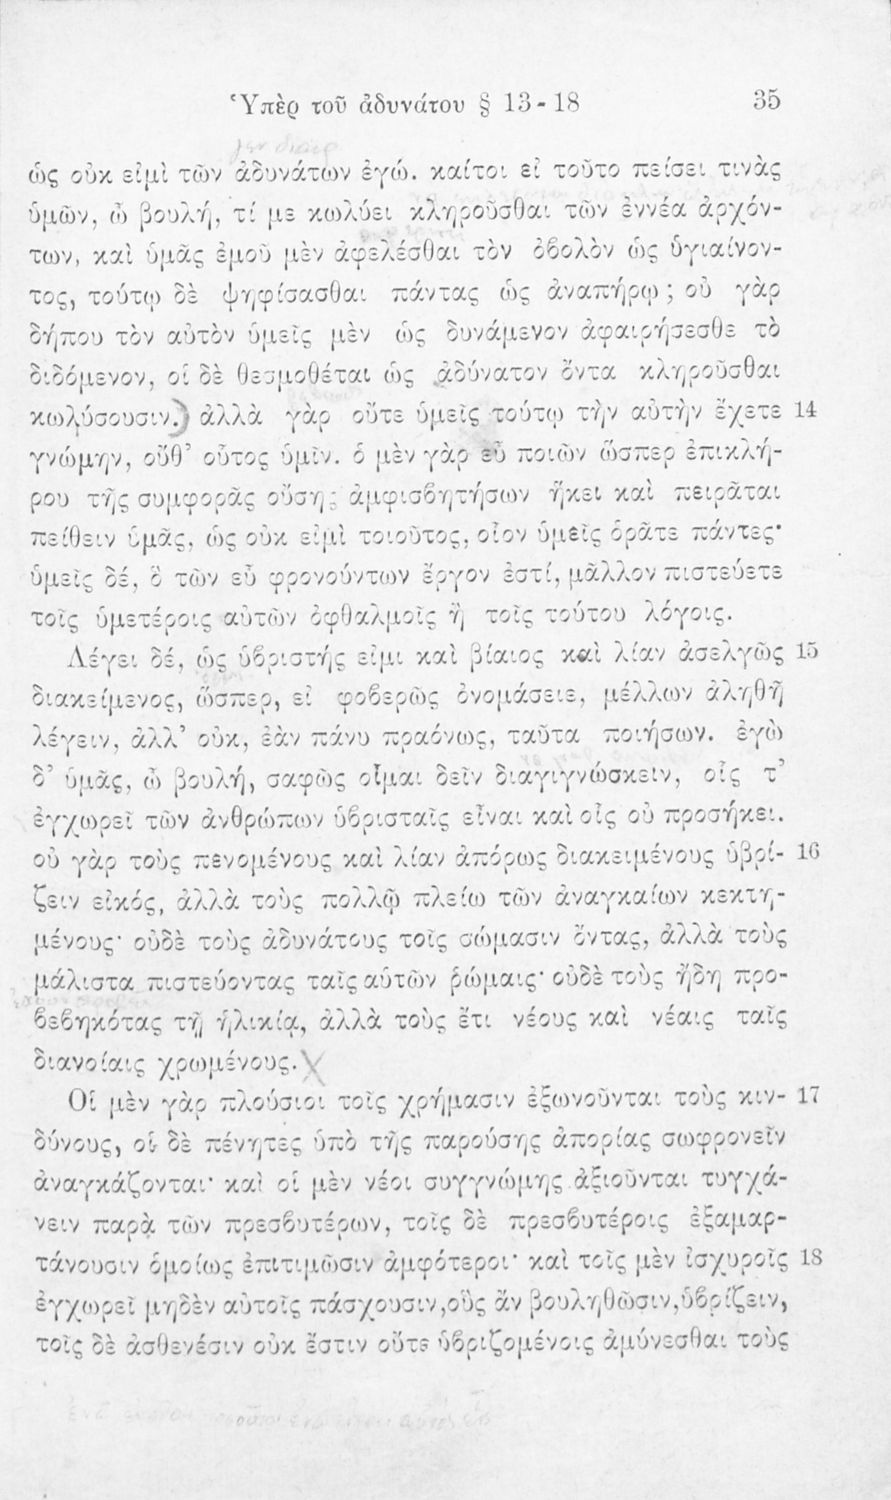 Ὑπὲρ τοῦ ἀδυνάτου § 13 - 18 35
ὡς οὐκ εἰμὶ τῶν ἀδυνάτων ἐγώ. καίτοι εἰ τοῦτο πείσει τινὰς
ὑμῶν, ὦ βουλή, τί με κωλύει κληροῦσθαι τῶν ἐννέα ἀρχόν-
των, καὶ ὑμᾶς ἐμοῦ μὲν ἀφελέσθαι τὸν ὀβολὸν ὡς ὑγιαίνον-
τος, τούτῳ δὲ ψηφίσασθαι πάντας ὡς ἀναπήρῳ; οὐ γὰρ
δήπου τὸν αὐτὸν ὑμεῖς μὲν ὡς δυνάμενον ἀφαιρήσεσθε τὸ
διδόμενον, οἱ δὲ θεσμοθέται ὡς ἀδύνατον ὄντα κληροῦσθαι
κωλύσουσιν. ἀλλὰ γὰρ οὔτε ὑμεῖς τούτῳ τὴν αὐτὴν ἔχετε 14
γνώμην, οὔθ’ οὗτος ὑμῖν. ὁ μὲν γὰρ εὖ ποιῶν ὥσπερ ἐπικλή-
ρου τῆς συμφορᾶς οὔσης ἀμφισβητήσων ἥκει καὶ πειρᾶται
πείθειν ὑμᾶς, ὡς οὐκ εἰμὶ τοιοῦτος, οἷον ὑμεῖς ὁρᾶτε πάντες·
ὑμεῖς δέ, ὃ τῶν εὖ φρονούντων ἔργον ἐστί, μᾶλλον πιστεύετε
τοῖς ὑμετέροις αὐτῶν ὀφθαλμοῖς ἢ τοῖς τούτου λόγοις.
Λέγει δέ, ὡς ὑβριστής εἰμι καὶ βίαιος καὶ λίαν ἀσελγῶς 15
διακείμενος, ὥσπερ, εἰ φοβερῶς ὀνομάσειε, μέλλων ἀληθῆ
λέγειν, ἀλλ’ οὐκ, ἐὰν πάνυ πραόνως, ταῦτα ποιήσων. ἐγὼ
δ’ ὑμᾶς, ὦ βουλή, σαφῶς οἶμαι δεῖν διαγιγνώσκειν, οἷς τ’
ἐγχωρεῖ τῶν ἀνθρώπων ὑβρισταῖς εἶναι καὶ οἷς οὐ προσήκει.
οὐ γὰρ τοὺς πενομένους καὶ λίαν ἀπόρως διακειμένους ὑβρί- 16
ζειν εἰκός, ἀλλὰ τοὺς πολλῷ πλείω τῶν ἀναγκαίων κεκτη-
μένους· οὐδὲ τοὺς ἀδυνάτους τοῖς σώμασιν ὄντας, ἀλλὰ τοὺς
μάλιστα πιστεύοντας ταῖς αὑτῶν ῥώμαις· οὐδὲ τοὺς ἤδη προ-
βεβηκότας τῇ ἡλικίᾳ, ἀλλὰ τοὺς ἔτι νέους καὶ νέαις ταῖς
διανοίαις χρωμένους.
Οἱ μὲν γὰρ πλούσιοι τοῖς χρήμασιν ἐξωνοῦνται τοὺς κιν- 17
δύνους, οἱ δὲ πένητες ὑπὸ τῆς παρούσης ἀπορίας σωφρονεῖν
ἀναγκάζονται· καὶ οἱ μὲν νέοι συγγνώμης ἀξιοῦνται τυγχά-
νειν παρὰ τῶν πρεσβυτέρων, τοῖς δὲ πρεσβυτέροις ἐξαμαρ-
τάνουσιν ὁμοίως ἐπιτιμῶσιν ἀμφότεροι· καὶ τοῖς μὲν ἰσχυροῖς 18
ἐγχωρεῖ μηδὲν αὐτοῖς πάσχουσιν, οὓς ἂν βουληθῶσιν, ὑβρίζειν,
τοῖς δὲ ἀσθενέσιν οὐκ ἔστιν οὔτε ὑβριζομένοις ἀμύνεσθαι τοὺς